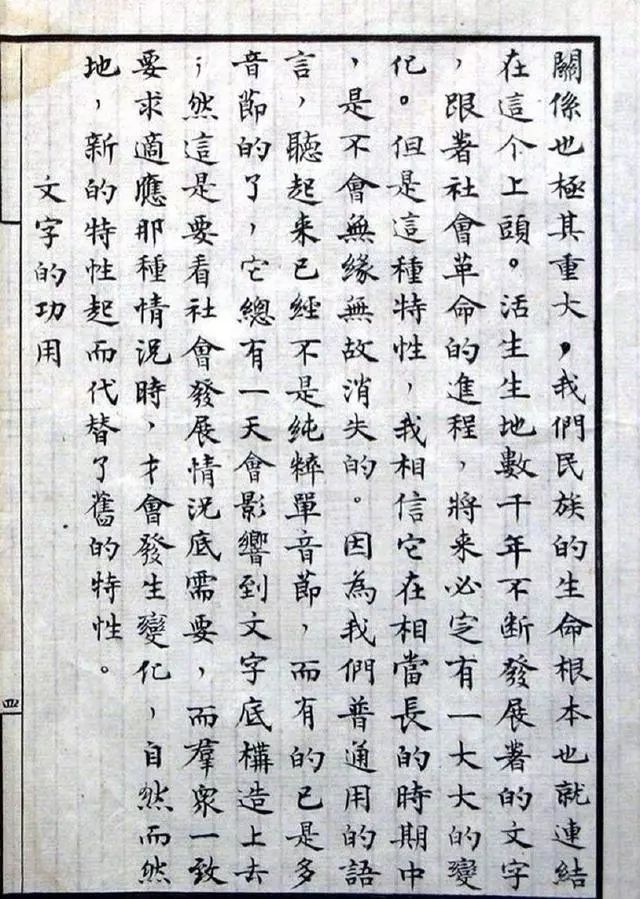 關係也極其重大，我們民族的生命根本也就連結
在這个上頭。活生生地數千年不断發展著的文字
，跟著社會革命的進程，將来必定有一大大的變
化。但是這種特性，我相信它在相當長的時期中
，是不會無緣無故消失的。因為我們普通用的語
言，聽起来已經不是純粹單音節，而有的已是多
音節的了，它總有一天會影響到文字底構造上去
；然這是要看社會發展情況底需要，而羣眾一致
要求適應那種情況時，才會發生變化，自然而然
地，新的特性起而代替了舊的特性。
文字的功用
四